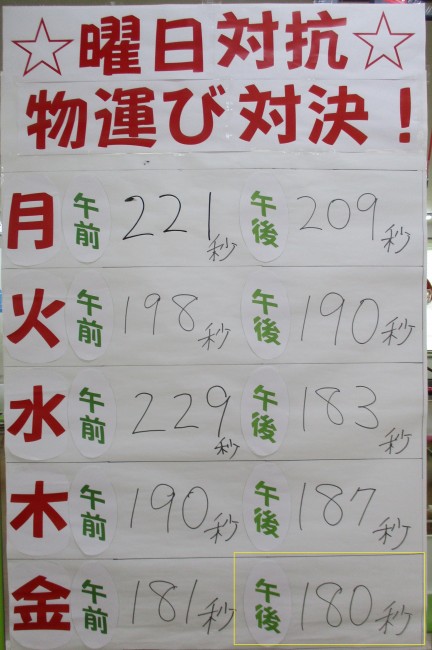 ☆曜日対抗☆
物運び対決！
月 午前 221秒 午後 209秒
火 午前 198秒 午後 190秒
水 午前 229秒 午後 183秒
木 午前 190秒 午後 187秒
金 午前 181秒 午後 180秒